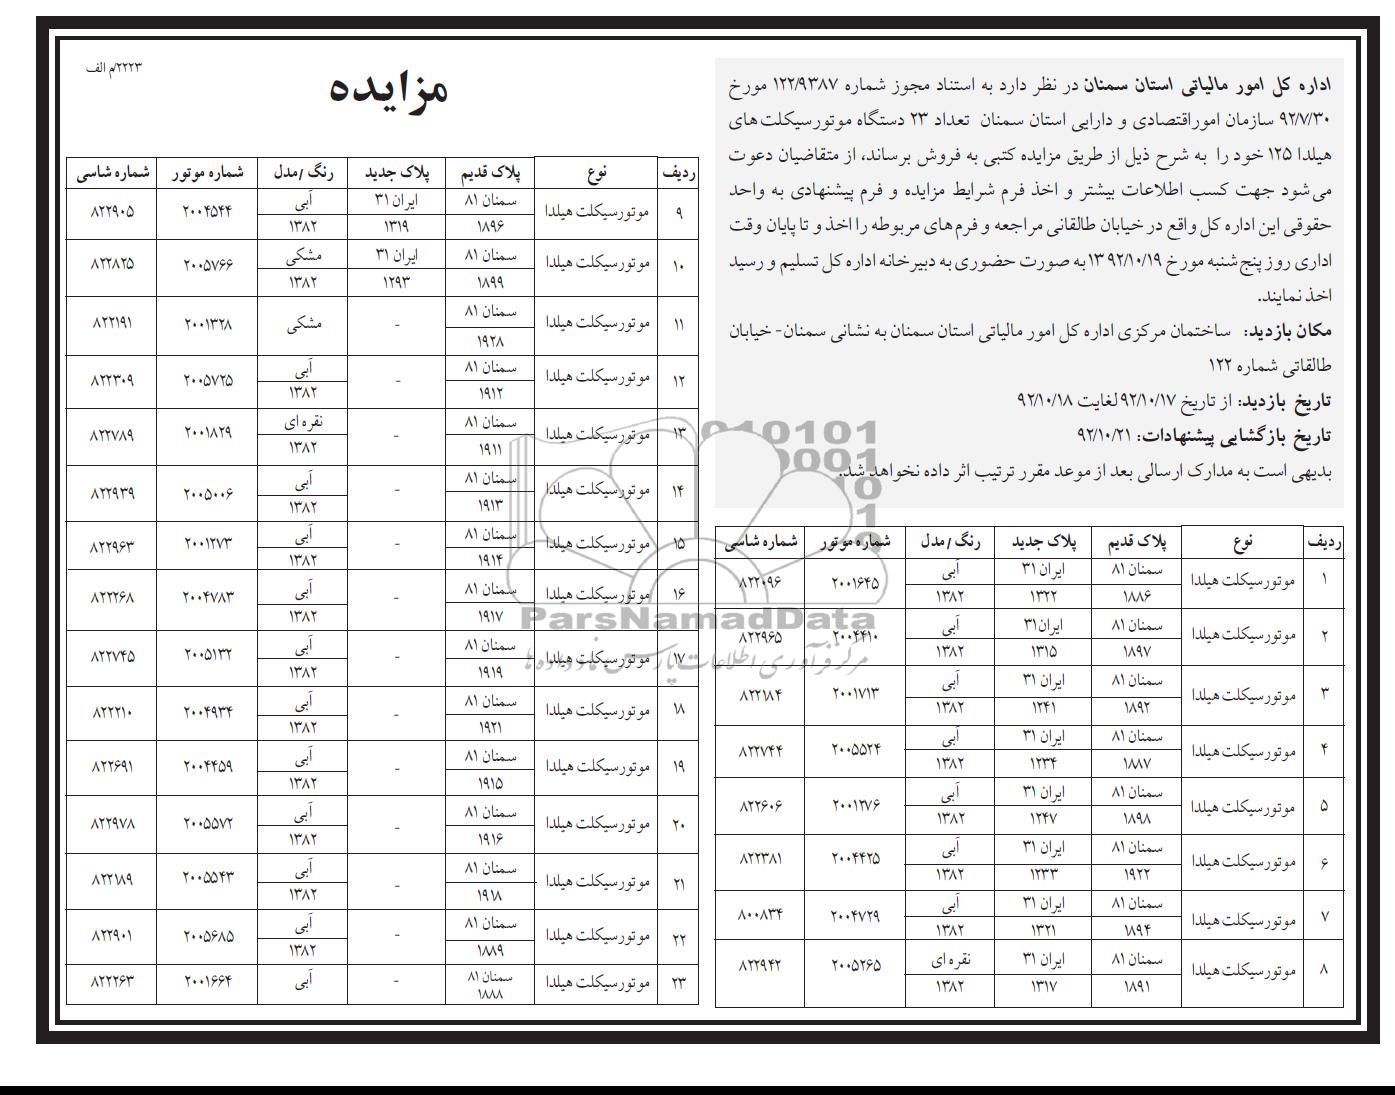 ۲۲۲۳/م الف
مزایده
اداره کل امور مالیاتی استان سمنان در نظر دارد به استناد مجوز شماره ۱۲۲/۹۳۸۷ مورخ
۹۲/۷/۳۰ سازمان اموراقتصادی و دارایی استان سمنان تعداد ۲۳ دستگاه موتورسیکلت های
هیلدا ۱۲۵ خود را به شرح ذیل از طریق مزایده کتبی به فروش برساند، از متقاضیان دعوت
می شود جهت کسب اطلاعات بیشتر و اخذ فرم شرایط مزایده و فرم پیشنهادی به واحد
حقوقی این اداره کل واقع در خیابان طالقانی مراجعه و فرم های مربوطه را اخذ و تا پایان وقت
اداری روز پنج شنبه مورخ ۱۳۹۲/۱۰/۱۹ به صورت حضوری به دبیرخانه اداره کل تسلیم و رسید
اخذ نمایند.
مکان بازدید: ساختمان مرکزی اداره کل امور مالیاتی استان سمنان به نشانی سمنان- خیابان
طالقاتی شماره ۱۲۲
تاریخ بازدید: از تاریخ ۹۲/۱۰/۱۷ لغایت ۹۲/۱۰/۱۸
تاریخ بازگشایی پیشنهادات: ۹۲/۱۰/۲۱
بدیهی است به مدارک ارسالی بعد از موعد مقرر ترتیب اثر داده نخواهد شد.
ردیف نوع پلاک قدیم پلاک جدید رنگ /مدل شماره موتور شماره شاسی
۱ موتورسیکلت هیلدا سمنان ۸۱ ۱۸۸۶ ایران ۳۱ ۱۳۲۲ آبی ۱۳۸۲ ۲۰۰۱۶۴۵ ۸۲۲۰۹۶
۲ موتورسیکلت هیلدا سمنان ۸۱ ۱۸۹۷ ایران۳۱ ۱۳۱۵ آبی ۱۳۸۲ ۲۰۰۴۴۱۰ ۸۲۲۹۶۵
۳ موتورسیکلت هیلدا سمنان ۸۱ ۱۸۹۲ ایران ۳۱ ۱۲۴۱ آبی ۱۳۸۲ ۲۰۰۱۷۱۳ ۸۲۲۱۸۴
۴ موتورسیکلت هیلدا سمنان ۸۱ ۱۸۸۷ ایران ۳۱ ۱۲۳۴ آبی ۱۳۸۲ ۲۰۰۵۵۲۴ ۸۲۲۷۴۴
۵ موتورسیکلت هیلدا سمنان ۸۱ ۱۸۹۸ ایران ۳۱ ۱۲۴۷ آبی ۱۳۸۲ ۲۰۰۱۲۷۶ ۸۲۲۶۰۶
۶ موتورسیکلت هیلدا سمنان ۸۱ ۱۹۲۲ ایران ۳۱ ۱۲۳۳ آبی ۱۳۸۲ ۲۰۰۴۴۲۵ ۸۲۲۳۸۱
۷ موتورسیکلت هیلدا سمنان ۸۱ ۱۸۹۴ ایران ۳۱ ۱۳۲۱ آبی ۱۳۸۲ ۲۰۰۴۷۲۹ ۸۰۰۸۳۴
۸ موتورسیکلت هیلدا سمنان ۸۱ ۱۸۹۱ ایران ۳۱ ۱۳۱۷ نقره ای ۱۳۸۲ ۲۰۰۵۲۶۵ ۸۲۲۹۴۲
ردیف نوع پلاک قدیم پلاک جدید رنگ /مدل شماره موتور شماره شاسی
۹ موتورسیکلت هیلدا سمنان ۸۱ ۱۸۹۶ ایران ۳۱ ۱۳۱۹ آبی ۱۳۸۲ ۲۰۰۴۵۴۴ ۸۲۲۹۰۵
۱۰ موتورسیکلت هیلدا سمنان ۸۱ ۱۸۹۹ ایران ۳۱ ۱۲۹۳ مشکی ۱۳۸۲ ۲۰۰۵۷۶۶ ۸۲۲۸۲۵
۱۱ موتورسیکلت هیلدا سمنان ۸۱ ۱۹۲۸ - مشکی ۲۰۰۱۳۲۸ ۸۲۲۱۹۱
۱۲ موتورسیکلت هیلدا سمنان ۸۱ ۱۹۱۲ - آبی ۱۳۸۲ ۲۰۰۵۷۲۵ ۸۲۲۳۰۹
۱۳ موتورسیکلت هیلدا سمنان ۸۱ ۱۹۱۱ - نقره ای ۱۳۸۲ ۲۰۰۱۸۲۹ ۸۲۲۷۸۹
۱۴ موتورسیکلت هیلدا سمنان ۸۱ ۱۹۱۳ - آبی ۱۳۸۲ ۲۰۰۵۰۰۶ ۸۲۲۹۳۹
۱۵ موتورسیکلت هیلدا سمنان ۸۱ ۱۹۱۴ - آبی ۱۳۸۲ ۲۰۰۱۲۷۳ ۸۲۲۹۶۳
۱۶ موتورسیکلت هیلدا سمنان ۸۱ ۱۹۱۷ - آبی ۱۳۸۲ ۲۰۰۴۷۸۳ ۸۲۲۲۶۸
۱۷ موتورسیکلت هیلدا سمنان ۸۱ ۱۹۱۹ - آبی ۱۳۸۲ ۲۰۰۵۱۳۲ ۸۲۲۷۴۵
۱۸ موتورسیکلت هیلدا سمنان ۸۱ ۱۹۲۱ - آبی ۱۳۸۲ ۲۰۰۴۹۳۴ ۸۲۲۲۱۰
۱۹ موتورسیکلت هیلدا سمنان ۸۱ ۱۹۱۵ - آبی ۱۳۸۲ ۲۰۰۴۴۵۹ ۸۲۲۶۹۱
۲۰ موتورسیکلت هیلدا سمنان ۸۱ ۱۹۱۶ - آبی ۱۳۸۲ ۲۰۰۵۵۷۲ ۸۲۲۹۷۸
۲۱ موتورسیکلت هیلدا سمنان ۸۱ ۱۹۱۸ - آبی ۱۳۸۲ ۲۰۰۵۵۴۳ ۸۲۲۱۸۹
۲۲ موتورسیکلت هیلدا سمنان ۸۱ ۱۸۸۹ - آبی ۱۳۸۲ ۲۰۰۵۶۸۵ ۸۲۲۹۰۱
۲۳ موتورسیکلت هیلدا سمنان ۸۱ ۱۸۸۸ - آبی ۲۰۰۱۶۶۴ ۸۲۲۲۶۳
ParsNamadData
مرکز فرآوری اطلاعات پارس نماد داده ها